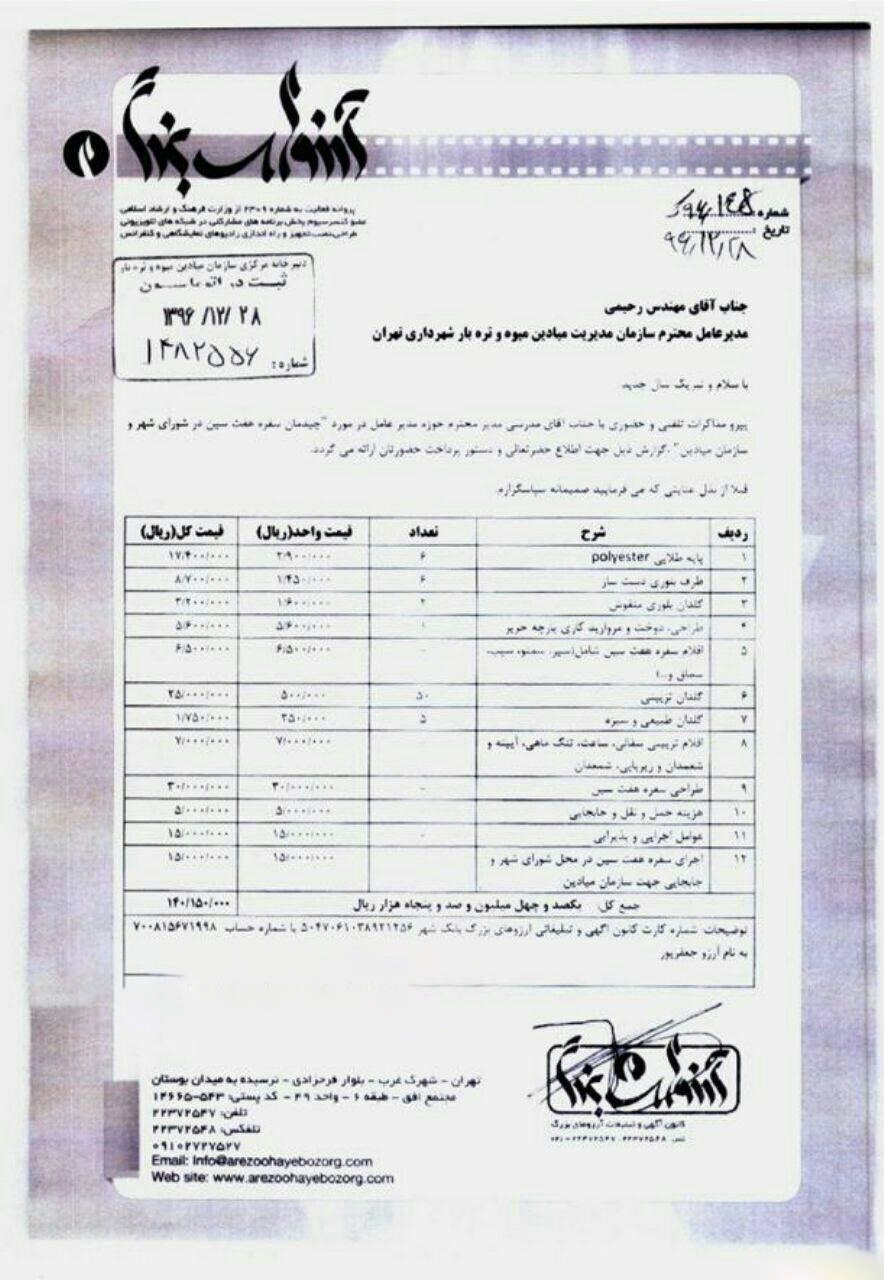 آرزوهای بزرگ
پروانه فعالیت به شماره ۲۳۰۹ از وزارت فرهنگ و ارشاد اسلامی
عضو کنسرسیوم پخش برنامه های مشارکتی در شبکه های تلویزیونی
طراحی،نصب،تجهیز و راه اندازی رادیوهای نمایشگاهی و کنفرانس
شماره :
تاریخ : ۹۶/۱۲/۲۸
دبیرخانه مرکزی سازمان میادین میوه و تره بار
ثبت در
۱۳۹۶ /۱۲/ ۲۸
شماره: ۱۴۸۲۵۵۶
جناب آقای مهندس رحیمی
مدیرعامل محترم سازمان مدیریت میادین میوه و تره بار شهرداری تهران
با سلام و تبریک سال جدید
پیرو مذاکرات تلفنی و حضوری با جناب آقای مدرسی مدیر محترم حوزه مدیر عامل در مورد "چیدمان سفره هفت سین در شورای شهر و
سازمان میادین" ،گزارش ذیل جهت اطلاع حضرتعالی و دستور پرداخت حضورتان ارائه می گردد.
قبلا از بذل عنایتی که می فرمایید صمیمانه سپاسگزارم.
ردیف شرح تعداد قیمت واحد(ریال) قیمت کل(ریال)
۱ پایه طلایی polyester ۶ ۲/۹۰۰/۰۰۰ ۱۷/۴۰۰/۰۰۰
۲ ظرف بلوری دست ساز ۶ ۱/۴۵۰/۰۰۰ ۸/۷۰۰/۰۰۰
۳ گلدان بلوری منقوش ۲ ۱/۶۰۰/۰۰۰ ۳/۲۰۰/۰۰۰
۴ طراحی، دوخت و مروارید کاری پارچه حریر ۱ ۵/۶۰۰/۰۰۰ ۵/۶۰۰/۰۰۰
۵ اقلام سفره هفت سین شامل(سیر، سمنو، سیب، - ۶/۵۰۰/۰۰۰ ۶/۵۰۰/۰۰۰
سماق و...)
۶ گلدان تزیینی ۵۰ ۵۰۰/۰۰۰ ۲۵/۰۰۰/۰۰۰
۷ گلدان طبیعی و سبزه ۵ ۳۵۰/۰۰۰ ۱/۷۵۰/۰۰۰
۸ اقلام تزیینی سفالی، ساعت، تنگ ماهی، آیینه و - ۷/۰۰۰/۰۰۰ ۷/۰۰۰/۰۰۰
شمعدان و زیرپایی، شمعدان
۹ طراحی سفره هفت سین - ۳۰/۰۰۰/۰۰۰ ۳۰/۰۰۰/۰۰۰
۱۰ هزینه حمل و نقل و جابجایی - ۵/۰۰۰/۰۰۰ ۵/۰۰۰/۰۰۰
۱۱ عوامل اجرایی و پذیرایی - ۱۵/۰۰۰/۰۰۰ ۱۵/۰۰۰/۰۰۰
۱۲ اجرای سفره هفت سین در محل شورای شهر و ۱۵/۰۰۰/۰۰۰ ۱۵/۰۰۰/۰۰۰
جابجایی جهت سازمان میادین
جمع کل: یکصد و چهل میلیون و صد و پنجاه هزار ریال ۱۴۰/۱۵۰/۰۰۰
توضیحات: شماره کارت کانون آگهی و تبلیغاتی آرزوهای بزرگ بانک شهر ۵۰۴۷۰۶۱۰۳۸۹۲۱۲۵۶ با شماره حساب ۷۰۰۸۱۵۶۷۱۹۹۸
به نام آرزو جعفرپور
آرزوهای بزرگ
کانون آگهی و تبلیغات آرزوهای بزرگ
تهران - شهرک غرب - بلوار فرحزادی - نرسیده به میدان بوستان
مجتمع افق - طبقه ۶ - واحد ۴۹ - کد پستی: ۵۴۳-۱۴۶۶۵
تلفن: ۲۲۳۷۲۵۴۷
تلفکس: ۲۲۳۷۲۵۴۸
۰۹۱۰۲۷۲۷۵۲۷
Email: Info@arezoohayebozorg.com
Web site: www.arezoohayebozorg.com